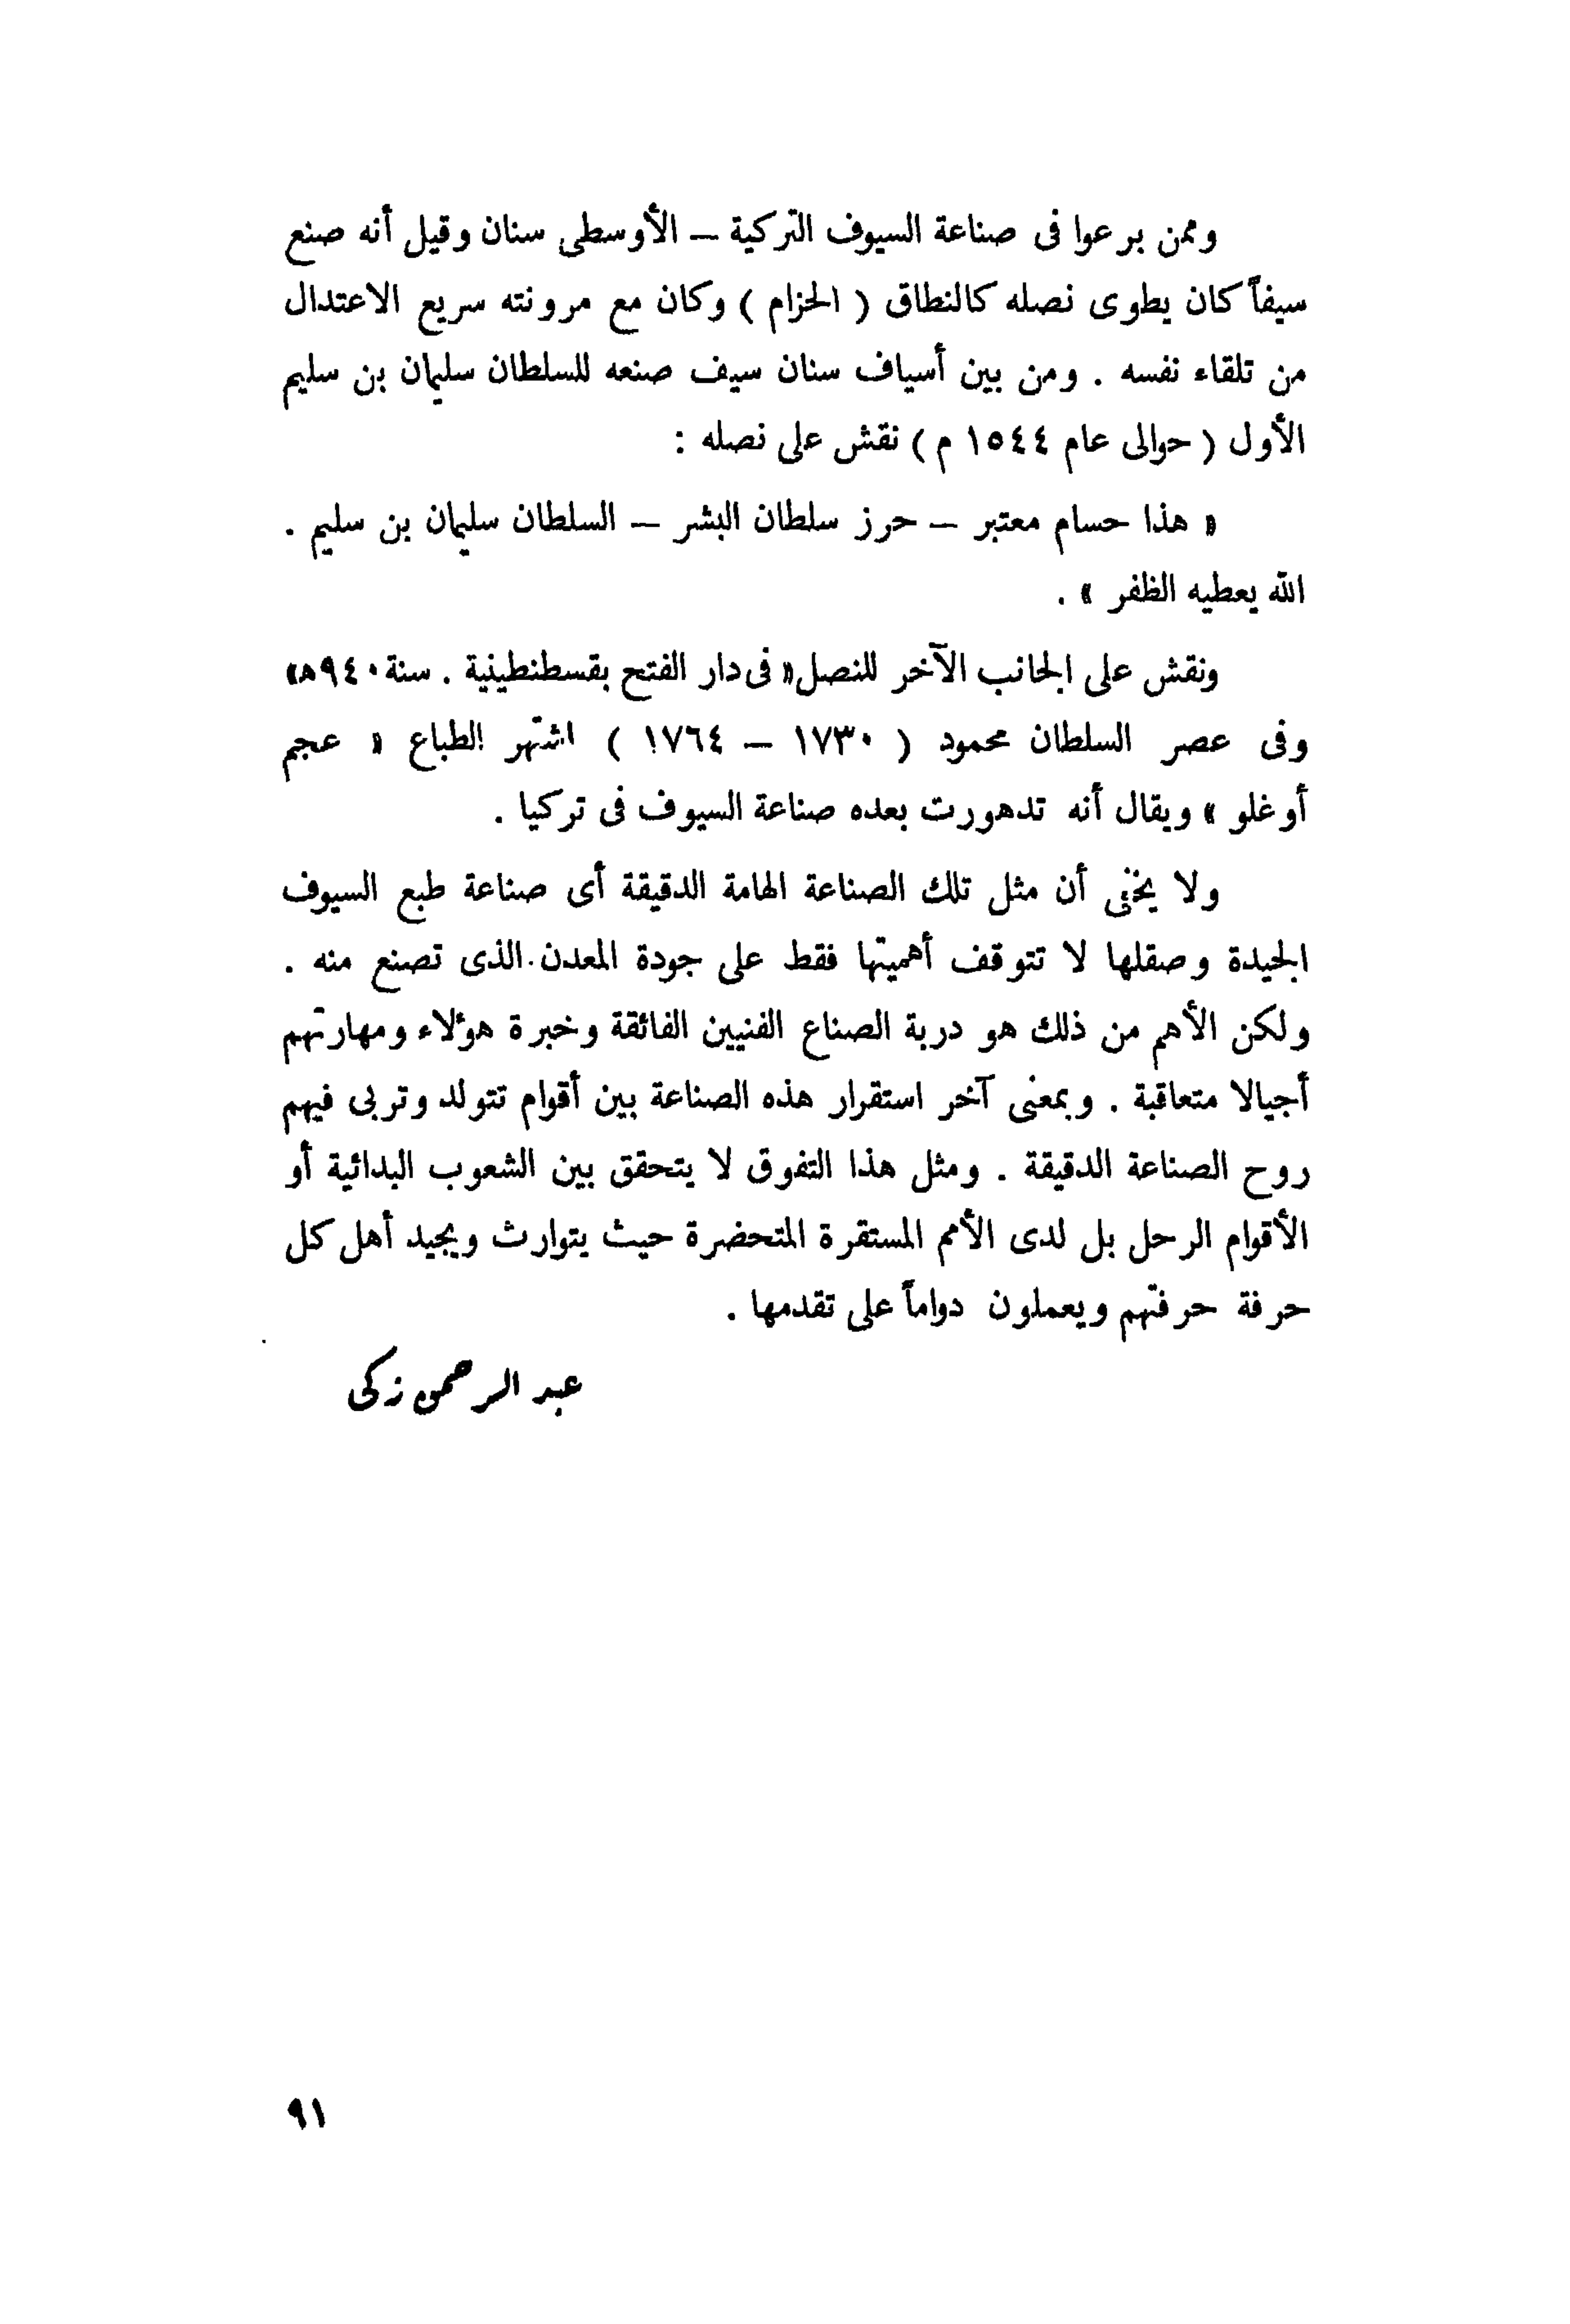 وممن برعوا فى صناعة السيوف التركية – الأوسطى سنان وقيل أنه صنع
سيفاً كان يطوى نصله كالنطاق ( الحزام ) وكان مع مرونته سريع الاعتدال
من تلقاء نفسه . ومن بين أسياف سنان سيف صنعه للسلطان سليمان بن سليم
الأول ( حوالى عام ١٥٤٤ م ) نقش على نصله :
« هذا حسام معتبر – حرز سلطان البشر – السلطان سليمان بن سليم .
الله يعطيه الظفر » .
ونقش على الجانب الآخر للنصل « فى دار الفتح بقسطنطينية . سنة ٩٤٠هـ»
وفى عصر السلطان محمود ( ١٧٣٠ – ١٧٦٤ ) اشتهر الطباع « عجم
أوغلو » ويقال أنه تدهورت بعده صناعة السيوف فى تركيا .
ولا يخفى أن مثل تلك الصناعة الهامة الدقيقة أى صناعة طبع السيوف
الجيدة وصقلها لا تتوقف أهميتها فقط على جودة المعدن الذى تصنع منه .
ولكن الأهم من ذلك هو دربة الصناع الفنيين الفائقة وخبرة هؤلاء ومهارتهم
أجيالا متعاقبة . وبمعنى آخر استقرار هذه الصناعة بين أقوام تتولد وتربى فيهم
روح الصناعة الدقيقة . ومثل هذا التفوق لا يتحقق بين الشعوب البدائية أو
الأقوام الرحل بل لدى الأمم المستقرة المتحضرة حيث يتوارث ويجيد أهل كل
حرفة حرفتهم ويعملون دواماً على تقدمها .
عبد الرحمن زكى
٩١